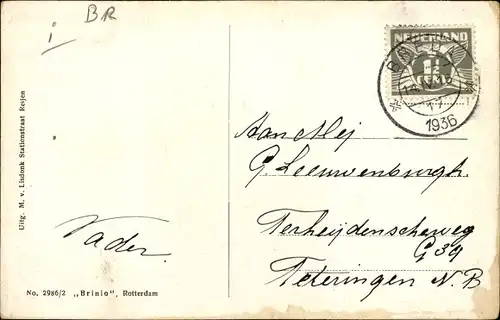 i
BR
NEDERLAND
1½
CENT
BREDA
1936
Aan Mej
G. Leeuwenburgh.
Terheijdenscheweg
G 39
Teteringen N. B
Vader.
Uitg. M. v. Lindonk Stationstraat Reijen
No. 2986/2 „Brinio", Rotterdam